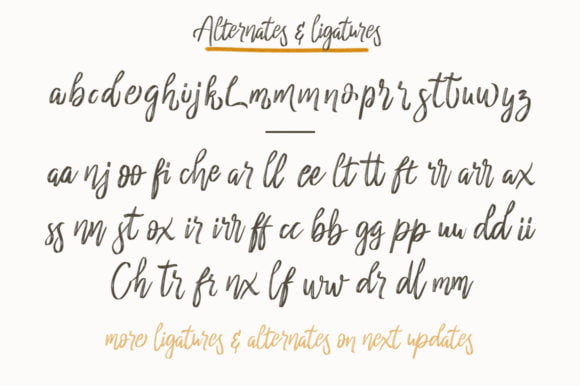 Alternates & ligatures
abcdeghijkLmmmnoprrsttuwyz
aa nj oo fi che ar ll ee lt tt ft rr arr ax
ss nn st ox ir irr ff cc bb gg pp uu dd ii
Ch tr fr nx lf uw dr dl mm
more ligatures & alternates on next updates